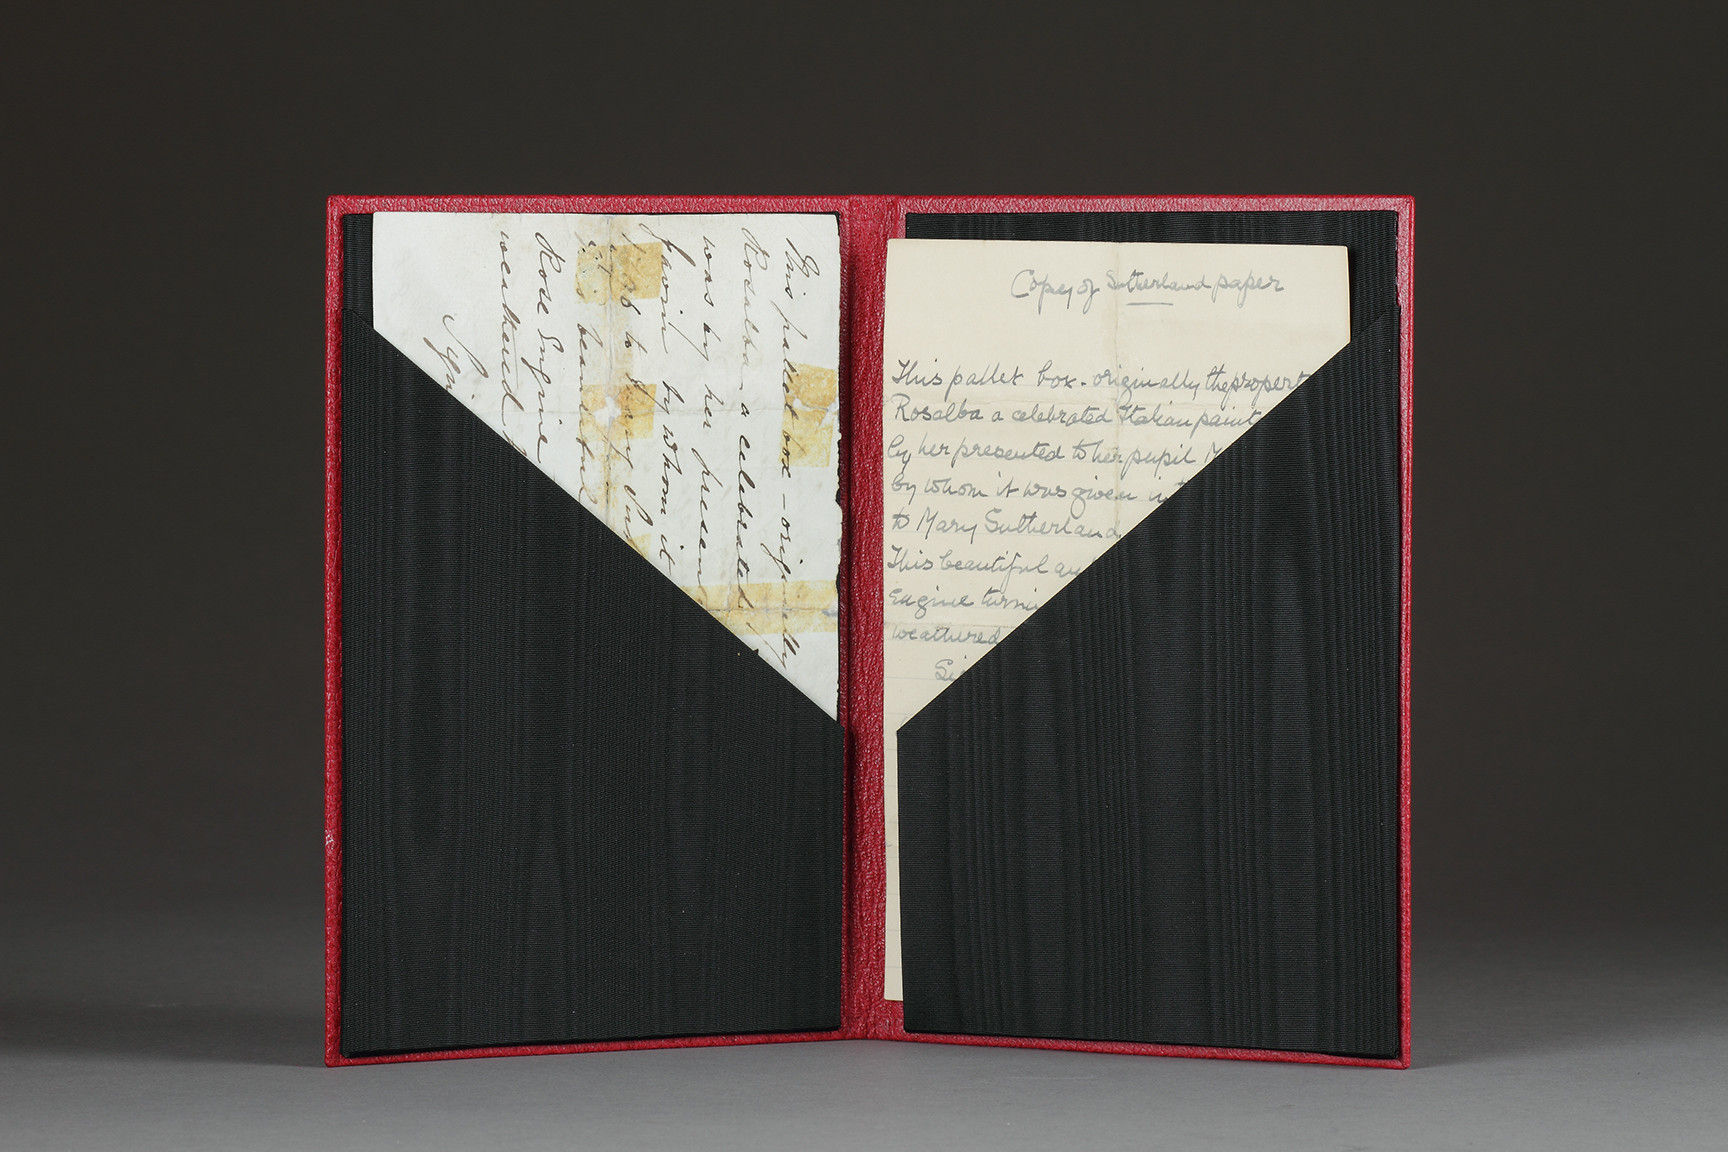 This pallet box - originally
Rosalba a celebrated
was by her presen
by whom it
1796 to Mary Su
this beautiful
Rose Engine
weathered
Sign
Copy of Sutherland paper
This pallet box - originally the propert
Rosalba a celebrated Italian paint
by her presented to her pupil M
by whom it was given in
to Mary Sutherland
This beautiful an
Engine turni
weathered
Si